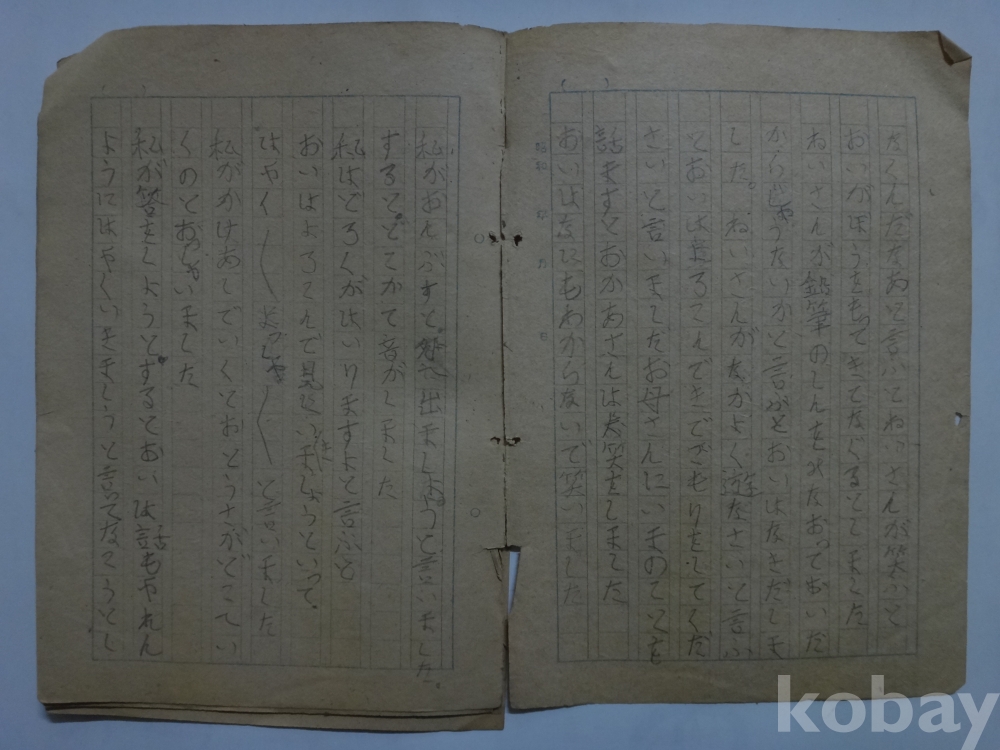 なくんだなあと言いとねいさんが笑ふと
おいがほうをもってきてなぐるとしました
ねいさんが鉛筆のしんをみなおっておいだ
からじゃうたいかと言がとおいはなきだしま
した。ねいさんがなかよく遊なさいと言ふ
とおいはよろこんできてざもりをしてくだ
さいと言いましたお母さんにいまのことを
話ますとおかあさんは大笑をしました
おいはなにもわからないで笑いました
私がおんぶすと出ましょうと言いました。
するとどこかで音がしました
私はどろくがはいりますよと言ふと
おいはよろこんで見にいきましょうといって。
はやく〱よっしゃ〱と言いました
私がかけあしでいくとおとうさがどこてい
くのとおっしゃいました
私が答をしようとするとおいは話もやれん
ようにはやくいきましうと言ってなこうとし
kobay